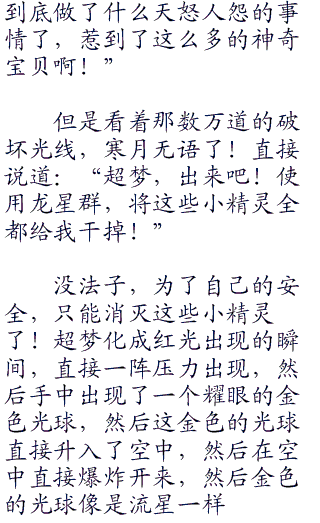 到底做了什么天怒人怨的事
情了，惹到了这么多的神奇
宝贝啊！”
但是看着那数万道的破
坏光线，寒月无语了！直接
说道：“超梦，出来吧！使
用龙星群，将这些小精灵全
都给我干掉！”
没法子，为了自己的安
全，只能消灭这些小精灵
了！超梦化成红光出现的瞬
间，直接一阵压力出现，然
后手中出现了一个耀眼的金
色光球，然后这金色的光球
直接升入了空中，然后在空
中直接爆炸开来，然后金色
的光球像是流星一样